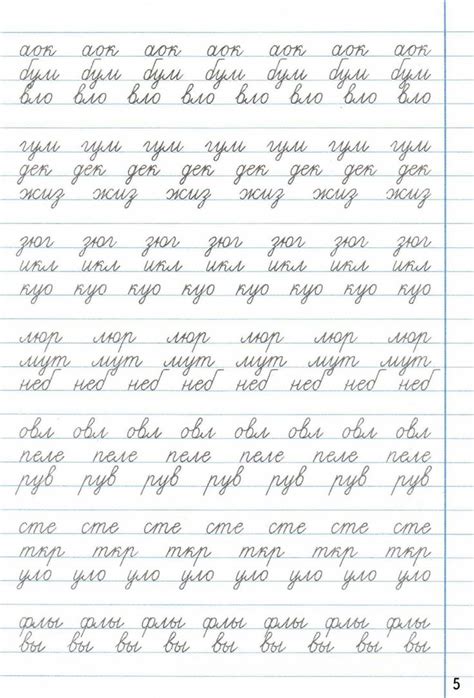 аок аок аок аок аок аок аок
бум бум бум бум бум бум бум
вло вло вло вло вло вло вло вло
гум гум гум гум гум гум гум
дек дек дек дек дек дек дек
жиз жиз жиз жиз жиз жиз
зюг зюг зюг зюг зюг зюг зюг
икл икл икл икл икл икл икл
куо куо куо куо куо куо куо куо
люр люр люр люр люр люр
мут мут мут мут мут мут
неб неб неб неб неб неб неб
овл овл овл овл овл овл овл овл
пеле пеле пеле пеле пеле пеле
рув рув рув рув рув рув рув
сте сте сте сте сте сте сте
ткр ткр ткр ткр ткр ткр
уло уло уло уло уло уло уло уло
флы флы флы флы флы флы флы
вы вы вы вы вы вы вы вы
5